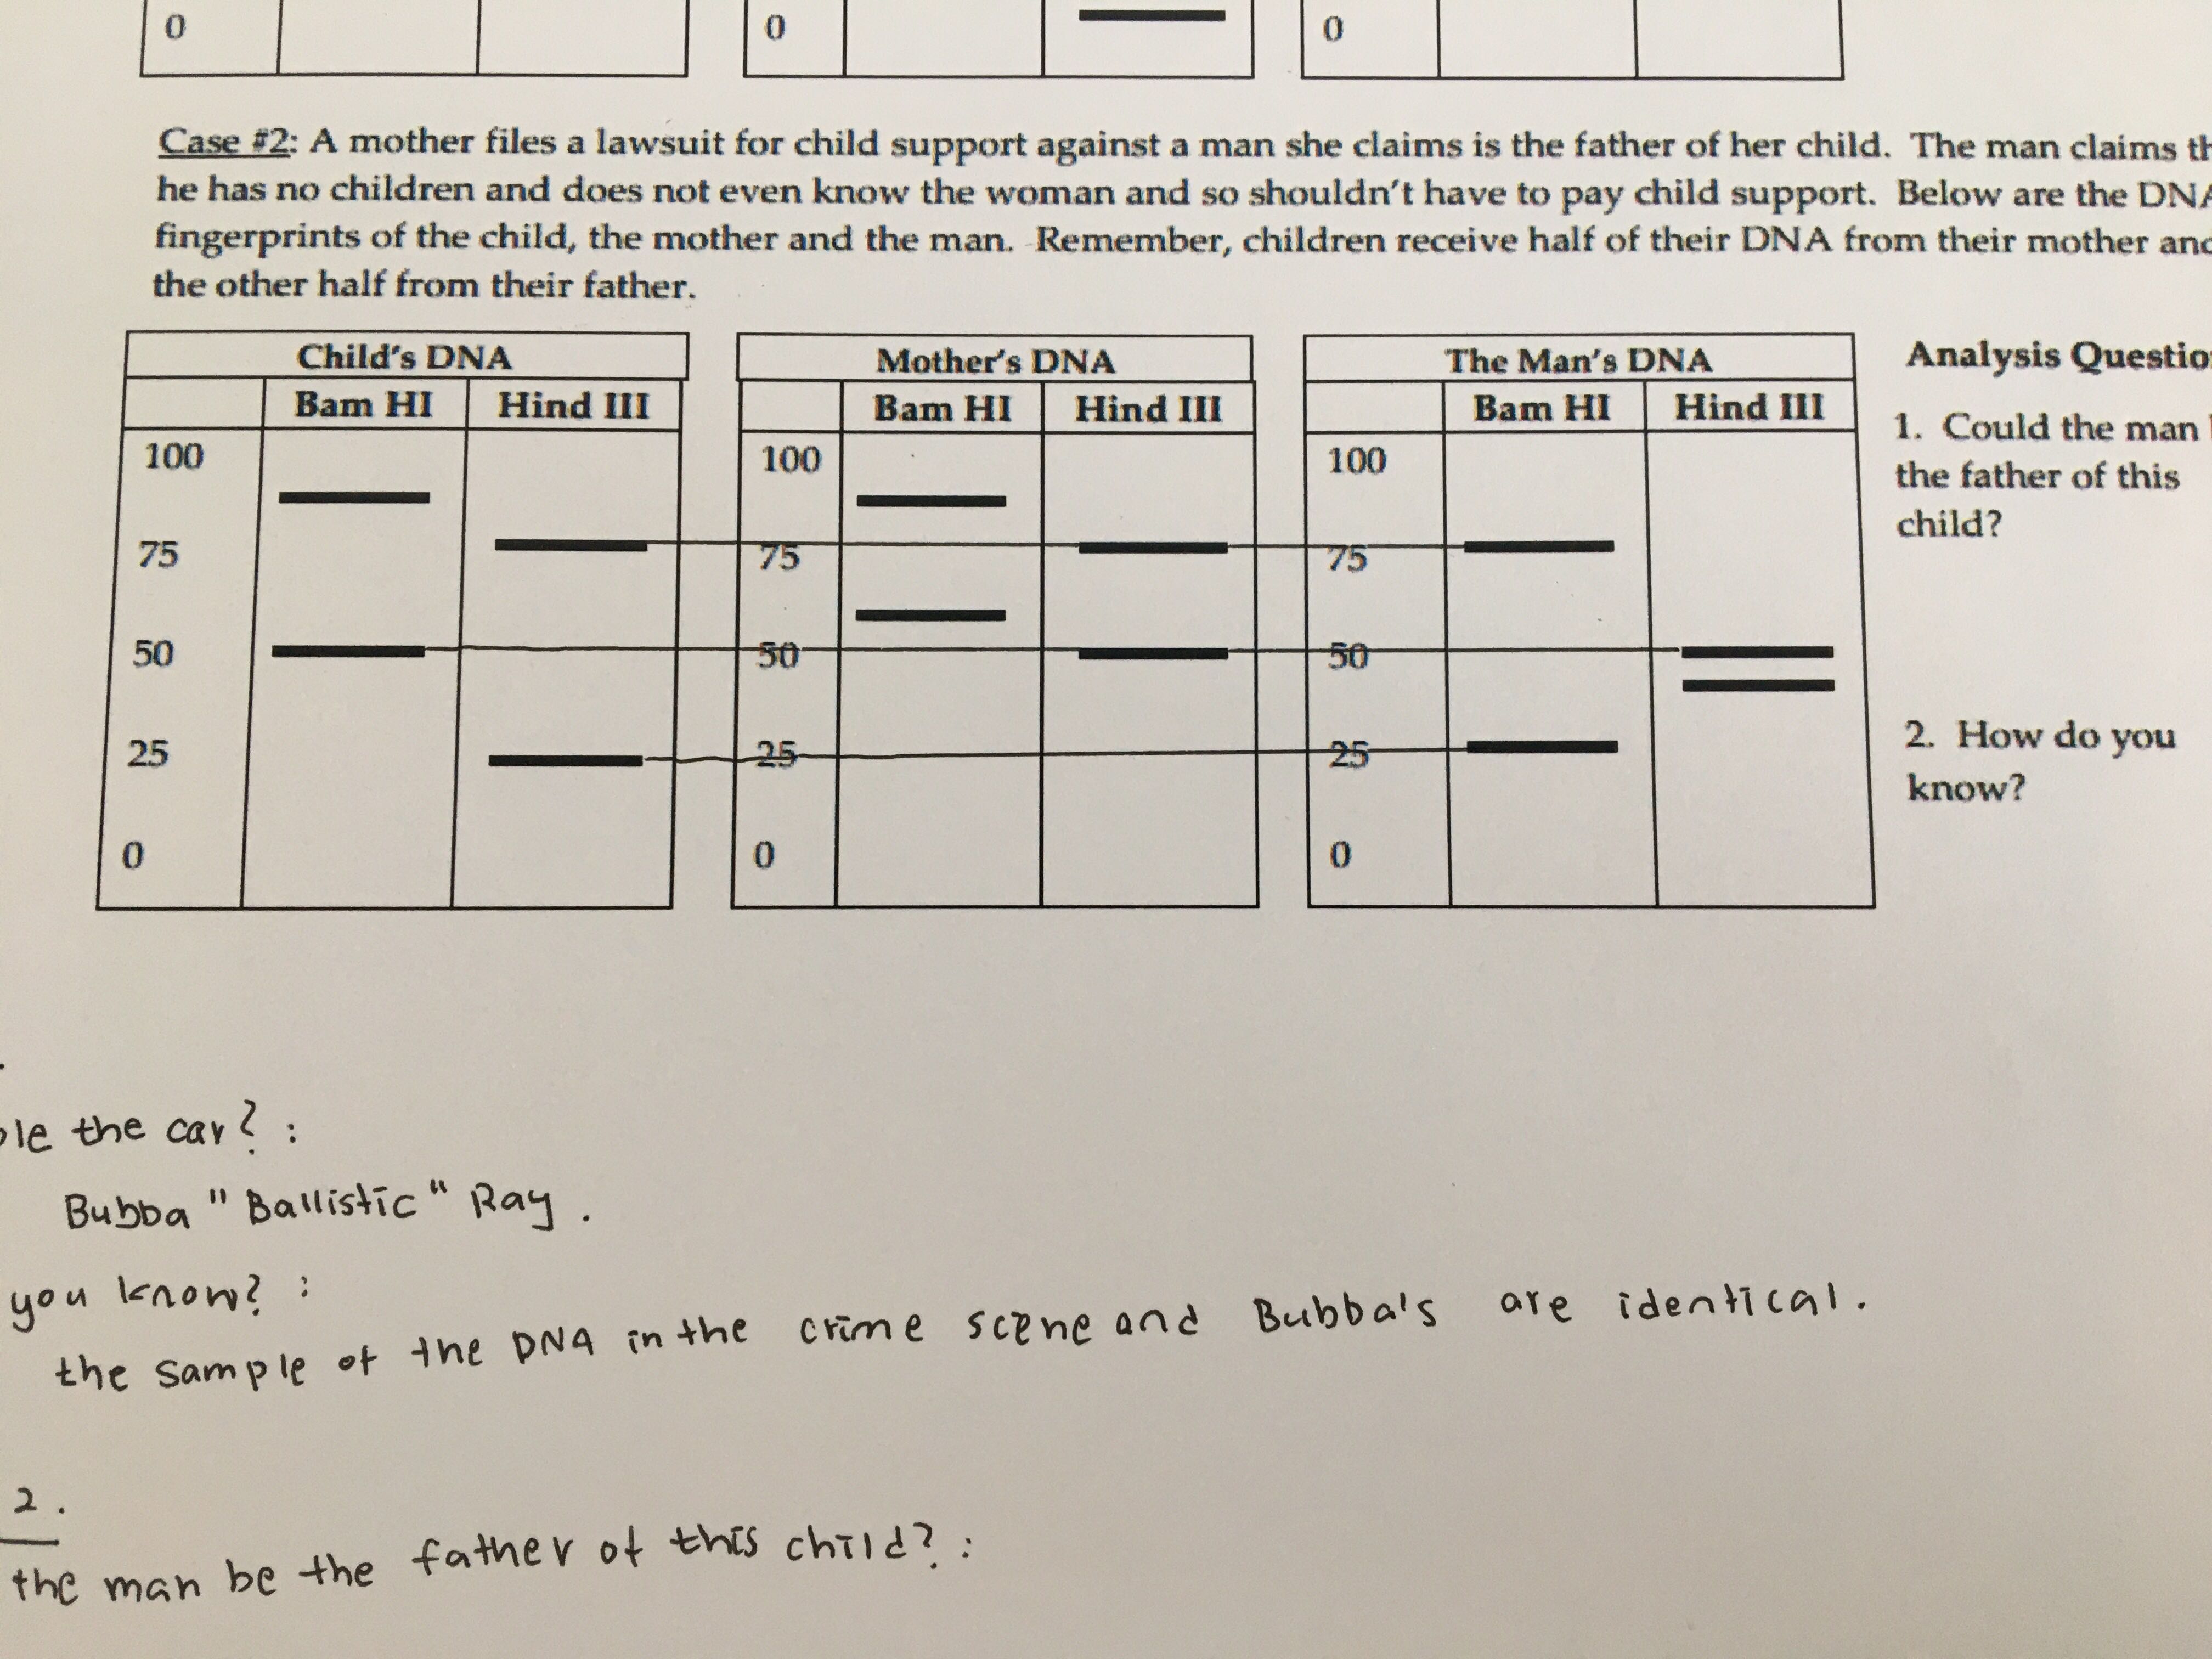 0 0 0
Case #2: A mother files a lawsuit for child support against a man she claims is the father of her child. The man claims th
he has no children and does not even know the woman and so shouldn't have to pay child support. Below are the DNA
fingerprints of the child, the mother and the man. Remember, children receive half of their DNA from their mother and
the other half from their father.
Child's DNA
Bam HI Hind III
100
75
50
25
0
Mother's DNA
Bam HI Hind III
100
75
50
25
0
The Man's DNA
Bam HI Hind III
100
75
50
25
0
Analysis Questio
1. Could the man
the father of this
child?
2. How do you
know?
ole the car? :
Bubba "Ballistic" Ray.
you know? :
the sample of the DNA in the crime scene and Bubba's are identical.
2.
the man be the father of this child? :